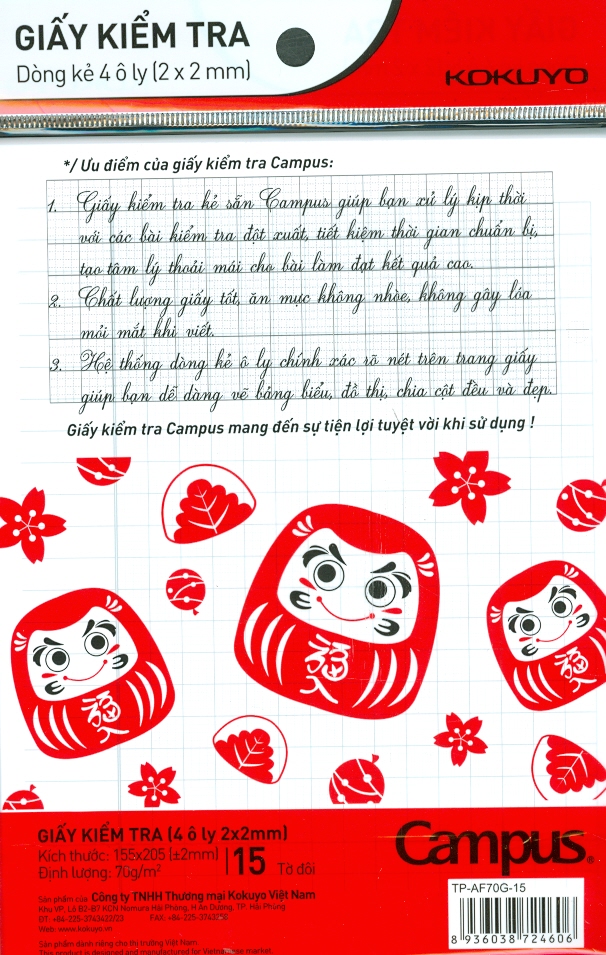 GIẤY KIỂM TRA
Dòng kẻ 4 ô ly (2 x 2 mm)
KOKUYO
*/ Ưu điểm của giấy kiểm tra Campus:
1. Giấy kiểm tra kẻ sẵn Campus giúp bạn xử lý kịp thời
với các bài kiểm tra đột xuất, tiết kiệm thời gian chuẩn bị,
tạo tâm lý thoải mái cho bài làm đạt kết quả cao.
2. Chất lượng giấy tốt, ăn mực không nhòe, không gây lóa
mỏi mắt khi viết.
3. Hệ thống dòng kẻ ô ly chính xác rõ nét trên trang giấy
giúp bạn dễ dàng vẽ bảng biểu, đồ thị, chia cột đều và đẹp.
Giấy kiểm tra Campus mang đến sự tiện lợi tuyệt vời khi sử dụng !
GIẤY KIỂM TRA (4 ô ly 2x2mm)
Kích thước: 155x205 (±2mm)
Định lượng: 70g/m²
15 Tờ đôi
Campus®
TP-AF70G-15
8 936038 724606
Sản phẩm của Công ty TNHH Thương mại Kokuyo Việt Nam
Khu VP, Lô B2-B7 KCN Nomura Hải Phòng, H An Dương, TP. Hải Phòng
ĐT: +84-225-3743422/23 FAX: +84-225-3743
Web: www.kokuyo.vn
Sản phẩm dành riêng cho thị trường Việt Nam.
This product is designed and manufactured for Vietnamese market.